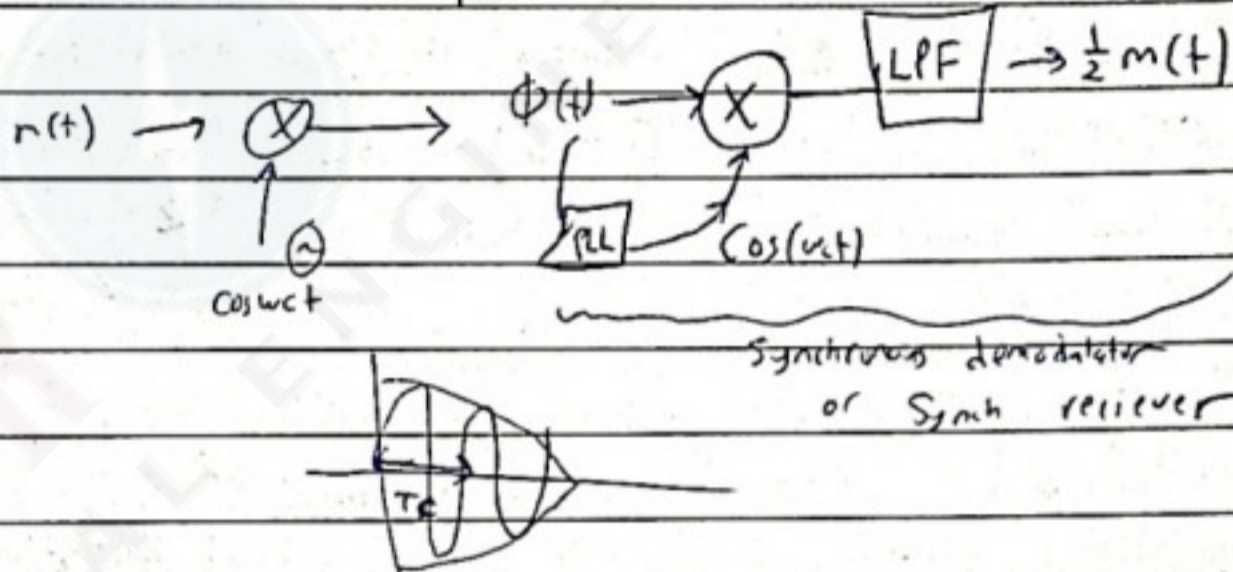 LPF → 1/2 m(t)
m(t) → X → ϕ(t) → X
PLL Cos(wct)
~
Cos wct
Synchronous demodulator
or Synch reciever
Tc